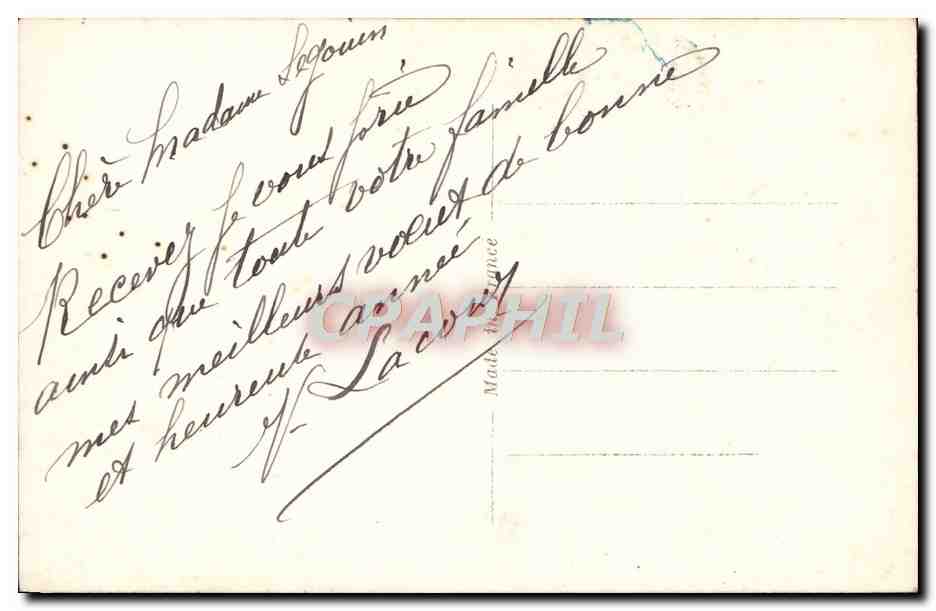 Chère Madame Segouin
Recevez je vous prie
ainsi que toute votre famille
mes meilleurs voeux de bonne
et heureuse année
Lacour
Made in France
CPAPHIL